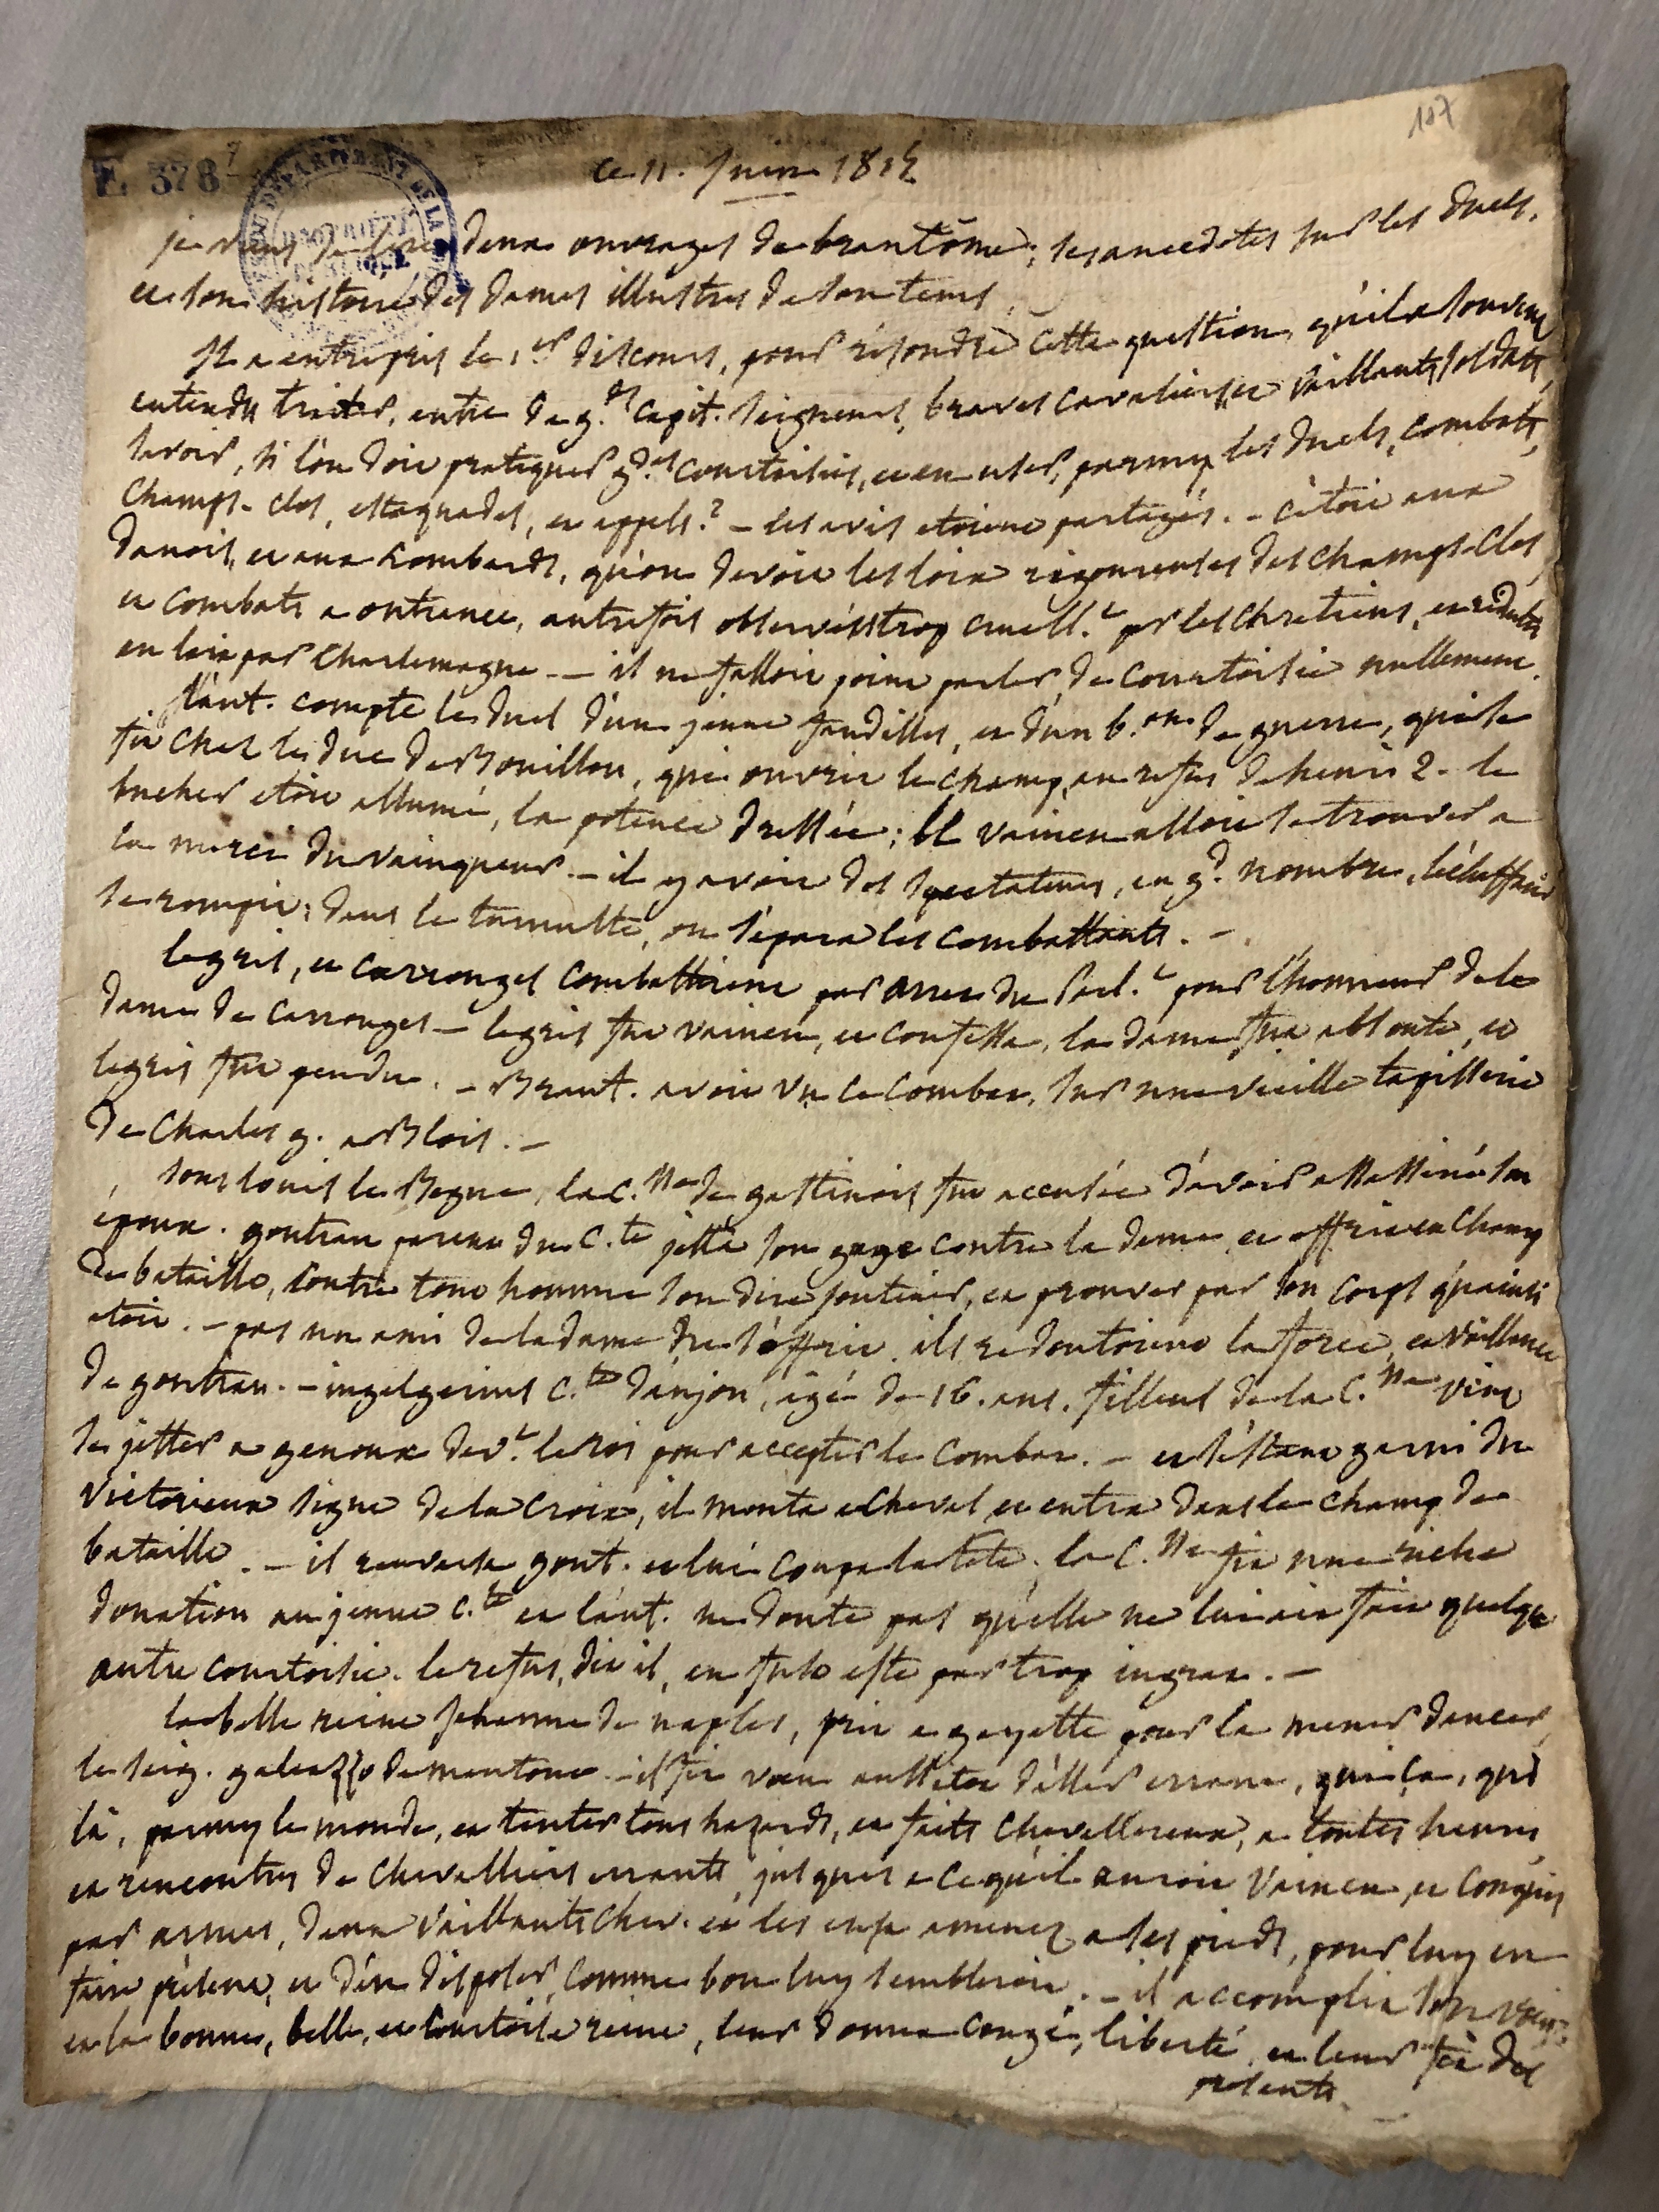 187
E. 378 7
ce 11. Juin 1812
je viens de lire deux ouvrages de brantôme; ses anecdotes sur les duels,
et son histoire des dames illustres de son tems.
Il a entrepris le 1.er discours, pour résoudre cette question, qu'il a souvent
entendu traiter, entre de g.ds capit. seigneurs, braves cavaliers, et vaillants soldats,
savoir, si l'on doit pratiquer g.des courtoisies, et en user, parmy les duels, combats,
champs-clos, estaquades, et appels? – les avis etoient partagés. – c'étoit aux
danois, et aux Lombards, qu'on devoit les loix rigoureuses des champs-clos,
et combats a outrance, autrefois observées trop cruell.t par les chretiens, et réduites
en loix par Charlemagne – il ne falloit point parler de courtoisie nullement.
l'aut. compte le duel d'un jeune fendilles, et d'un b.on de guerre, qui se
fit chez le duc de Bouillon, qui ouvrit le champ, au refus de henri 2. le
bucher etoit allumé, la potence dressée; le vaincu alloit se trouver a
la merci du vainqueur. – il y avoit des spectateurs, en g.d nombre, l'échaffaud
se rompit; dans le tumulte, on sépara les combattants. –
legris, et carrouges combattirent par arrest du Parl.t pour l'honneur de la
dame de carrouges – legris fut vaincu, et confessa, la dame fut absoute, et
legris fut pendu. – Brant. avoit vu ce combat, sur une vieille tapisserie
de Charles 9. a Blois. –
sous louis le Begue, la C.sse de gastinois fut accusée d'avoir assassiné son
époux. gontran parent du C.te jetta son gage contre la dame et offrit en champ
de bataille, contre tout homme son dire soutenir, et prouver par son corps qu'ainsi
etoit. – pas un ami de la dame ne s'offrit. ils redoutoient la force, et vaillance
de gontran. – ingelgerius C.te d'anjou, agé de 16. ans. filleul de la C.sse vint
se jetter a genoux dev.t le roi pour accepter le combat. – et s'estant garni du
victorieux signe de la Croix, il monta a cheval, et entra dans le champ de
bataille. – il renversa gont. et lui coupa la tete. la C.sse fit une riche
donation au jeune C.te et l'aut. ne doute pas qu'elle ne lui ait fait quelque
autre courtoisie. le refus, dit il, en fust esté par trop ingrat. –
la belle reine Jehanne de naples, prit a gayette pour la mener dancer,
le seig. galeazzo de mantoue – il fit voeu aussitôt d'aller errant, qui ça, qui
là, parmy le monde, et tenter tous hazards, et faits chevallereux, a toutes heures,
et rencontres de chevalliers errants, jusques a ce qu'il auroit vaincu, et conquis
par armes, deux vaillants chev. et les eust amenez a ses pieds, pour luy en
faire présent, et d'en disposer, comme bon luy sembleroit. – il accomplit son voeu;
et la bonne, belle, et courtoise reine, leur donna congé, liberté, et leur fit des
présents.